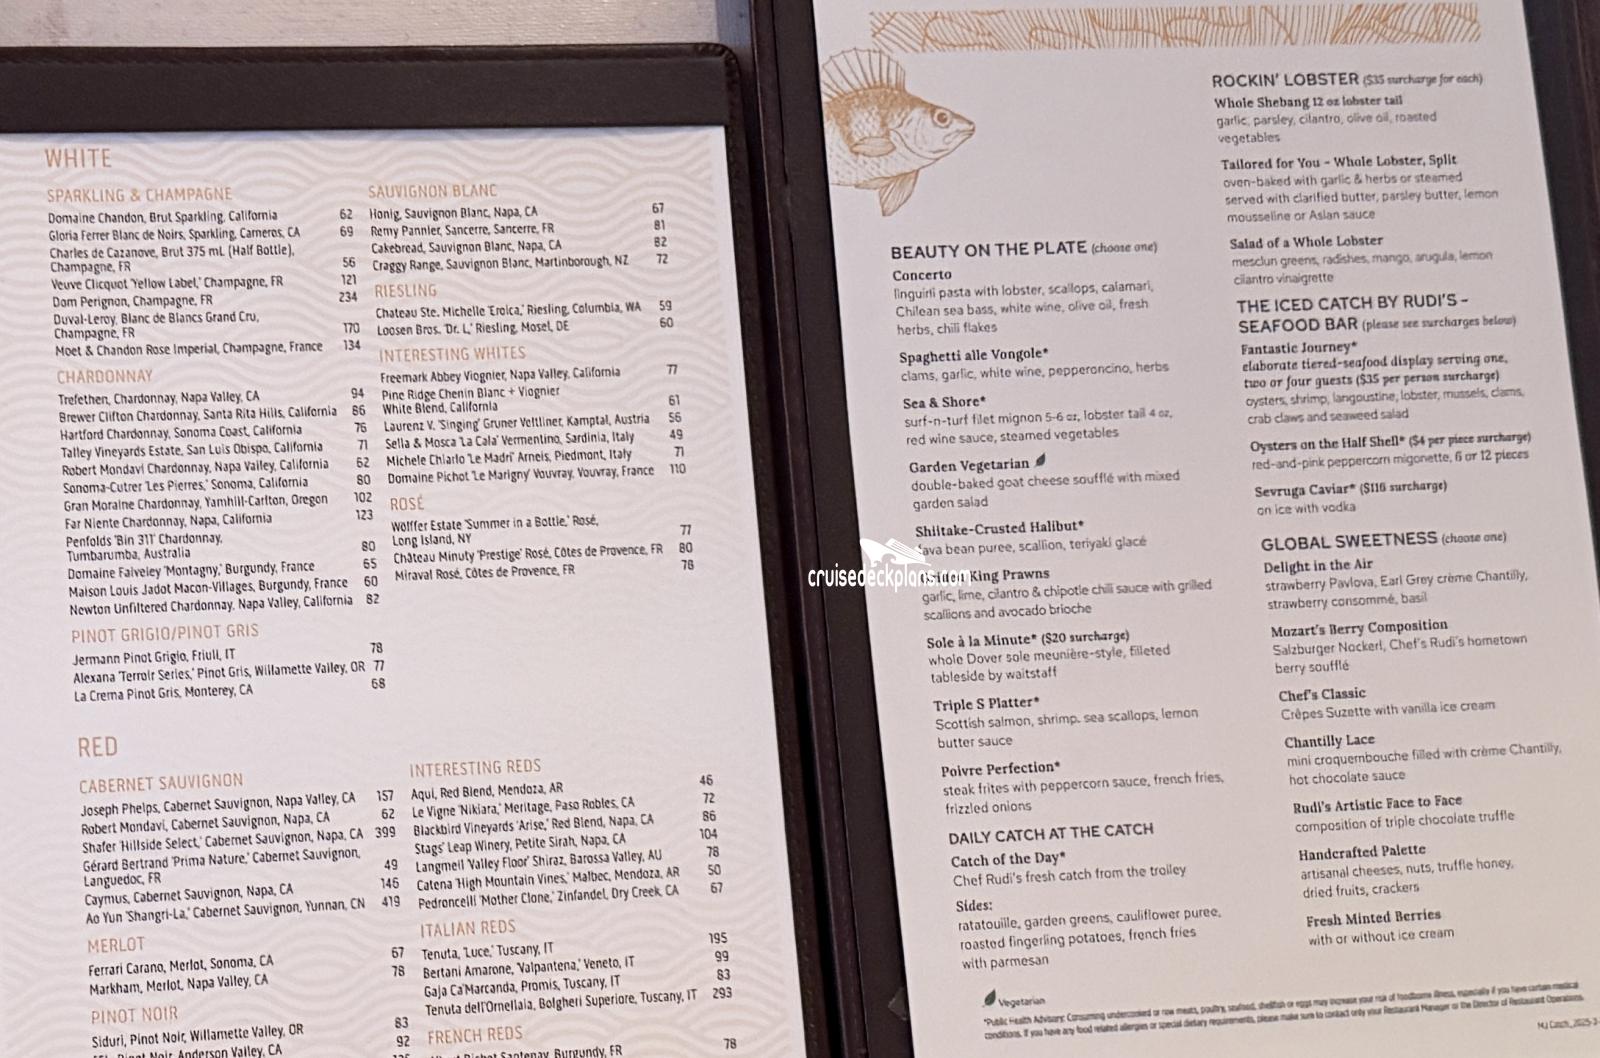 WHITE
SPARKLING & CHAMPAGNE
Domaine Chandon, Brut Sparkling, California 62
Gloria Ferrer Blanc de Noirs, Sparkling, Carneros, CA 69
Charles de Cazanove, Brut 375 mL (Half Bottle),
Champagne, FR 56
Veuve Clicquot 'Yellow Label,' Champagne, FR 121
Dom Perignon, Champagne, FR 234
Duval-Leroy, Blanc de Blancs Grand Cru,
Champagne, FR 170
Moet & Chandon Rose Imperial, Champagne, France 134
CHARDONNAY
Trefethen, Chardonnay, Napa Valley, CA 94
Brewer Clifton Chardonnay, Santa Rita Hills, California 86
Hartford Chardonnay, Sonoma Coast, California 76
Talley Vineyards Estate, San Luis Obispo, California 71
Robert Mondavi Chardonnay, Napa Valley, California 62
Sonoma-Cutrer 'Les Pierres,' Sonoma, California 80
Gran Moraine Chardonnay, Yamhill-Carlton, Oregon 102
Far Niente Chardonnay, Napa, California 123
Penfolds 'Bin 311' Chardonnay,
Tumbarumba, Australia 80
Domaine Faiveley 'Montagny,' Burgundy, France 65
Maison Louis Jadot Macon-Villages, Burgundy, France 60
Newton Unfiltered Chardonnay, Napa Valley, California 82
PINOT GRIGIO/PINOT GRIS
Jermann Pinot Grigio, Friuli, IT 78
Alexana 'Terroir Series,' Pinot Gris, Willamette Valley, OR 77
La Crema Pinot Gris, Monterey, CA 68
SAUVIGNON BLANC
Honig, Sauvignon Blanc, Napa, CA 67
Remy Pannier, Sancerre, Sancerre, FR 81
Cakebread, Sauvignon Blanc, Napa, CA 82
Craggy Range, Sauvignon Blanc, Martinborough, NZ 72
RIESLING
Chateau Ste. Michelle 'Eroica,' Riesling, Columbia, WA 59
Loosen Bros. 'Dr. L,' Riesling, Mosel, DE 60
INTERESTING WHITES
Freemark Abbey Viognier, Napa Valley, California 77
Pine Ridge Chenin Blanc + Viognier
White Blend, California 61
Laurenz V. 'Singing' Gruner Veltliner, Kamptal, Austria 56
Sella & Mosca 'La Cala' Vermentino, Sardinia, Italy 49
Michele Chiarlo 'Le Madri' Arneis, Piedmont, Italy 71
Domaine Pichot 'Le Marigny' Vouvray, Vouvray, France 110
ROSÉ
Wölffer Estate 'Summer in a Bottle,' Rosé,
Long Island, NY 77
Château Minuty 'Prestige' Rosé, Côtes de Provence, FR 80
Miraval Rosé, Côtes de Provence, FR 78
RED
CABERNET SAUVIGNON
Joseph Phelps, Cabernet Sauvignon, Napa Valley, CA 157
Robert Mondavi, Cabernet Sauvignon, Napa, CA 62
Shafer 'Hillside Select,' Cabernet Sauvignon, Napa, CA 399
Gérard Bertrand 'Prima Nature,' Cabernet Sauvignon,
Languedoc, FR 49
Caymus, Cabernet Sauvignon, Napa, CA 146
Ao Yun 'Shangri-La,' Cabernet Sauvignon, Yunnan, CN 419
MERLOT
Ferrari Carano, Merlot, Sonoma, CA 67
Markham, Merlot, Napa Valley, CA 78
PINOT NOIR
Siduri, Pinot Noir, Willamette Valley, OR 83
Pinot Noir, Anderson Valley, CA 92
INTERESTING REDS
Aqui, Red Blend, Mendoza, AR 46
Le Vigne 'Nikiara,' Meritage, Paso Robles, CA 72
Blackbird Vineyards 'Arise,' Red Blend, Napa, CA 86
Stags' Leap Winery, Petite Sirah, Napa, CA 104
Langmeil 'Valley Floor' Shiraz, Barossa Valley, AU 78
Catena 'High Mountain Vines,' Malbec, Mendoza, AR 50
Pedroncelli 'Mother Clone,' Zinfandel, Dry Creek, CA 67
ITALIAN REDS
Tenuta, 'Luce,' Tuscany, IT 195
Bertani Amarone, 'Valpantena,' Veneto, IT 99
Gaja Ca'Marcanda, Promis, Tuscany, IT 83
Tenuta dell'Ornellaia, Bolgheri Superiore, Tuscany, IT 293
FRENCH REDS
Santenay, Burgundy, FR 78
BEAUTY ON THE PLATE (choose one)
Concerto
linguini pasta with lobster, scallops, calamari,
Chilean sea bass, white wine, olive oil, fresh
herbs, chili flakes
Spaghetti alle Vongole*
clams, garlic, white wine, pepperoncino, herbs
Sea & Shore*
surf-n-turf filet mignon 5-6 oz, lobster tail 4 oz,
red wine sauce, steamed vegetables
Garden Vegetarian
double-baked goat cheese soufflé with mixed
garden salad
Shiitake-Crusted Halibut*
fava bean puree, scallion, teriyaki glacé
King Prawns
garlic, lime, cilantro & chipotle chili sauce with grilled
scallions and avocado brioche
Sole à la Minute* ($20 surcharge)
whole Dover sole meunière-style, filleted
tableside by waitstaff
Triple S Platter*
Scottish salmon, shrimp, sea scallops, lemon
butter sauce
Poivre Perfection*
steak frites with peppercorn sauce, french fries,
frizzled onions
DAILY CATCH AT THE CATCH
Catch of the Day*
Chef Rudi's fresh catch from the trolley
Sides:
ratatouille, garden greens, cauliflower puree,
roasted fingerling potatoes, french fries
with parmesan
ROCKIN' LOBSTER ($35 surcharge for each)
Whole Shebang 12 oz lobster tail
garlic, parsley, cilantro, olive oil, roasted
vegetables
Tailored for You - Whole Lobster, Split
oven-baked with garlic & herbs or steamed
served with clarified butter, parsley butter, lemon
mousseline or Asian sauce
Salad of a Whole Lobster
mesclun greens, radishes, mango, arugula, lemon
cilantro vinaigrette
THE ICED CATCH BY RUDI'S -
SEAFOOD BAR (please see surcharges below)
Fantastic Journey*
elaborate tiered-seafood display serving one,
two or four guests ($35 per person surcharge)
oysters, shrimp, langoustine, lobster, mussels, clams,
crab claws and seaweed salad
Oysters on the Half Shell* ($4 per piece surcharge)
red-and-pink peppercorn migonette, 6 or 12 pieces
Sevruga Caviar* ($116 surcharge)
on ice with vodka
GLOBAL SWEETNESS (choose one)
Delight in the Air
strawberry Pavlova, Earl Grey crème Chantilly,
strawberry consommé, basil
Mozart's Berry Composition
Salzburger Nockerl, Chef's Rudi's hometown
berry soufflé
Chef's Classic
Crêpes Suzette with vanilla ice cream
Chantilly Lace
mini croquembouche filled with crème Chantilly,
hot chocolate sauce
Rudi's Artistic Face to Face
composition of triple chocolate truffle
Handcrafted Palette
artisanal cheeses, nuts, truffle honey,
dried fruits, crackers
Fresh Minted Berries
with or without ice cream
Vegetarian
*Public Health Advisory: Consuming undercooked or raw meats, poultry, seafood, shellfish or eggs may increase your risk of foodborne illness, especially if you have certain medical
conditions. If you have any food related allergies or special dietary requirements, please make sure to contact only your Restaurant Manager or the Director of Restaurant Operations.
cruisedeckplans.com